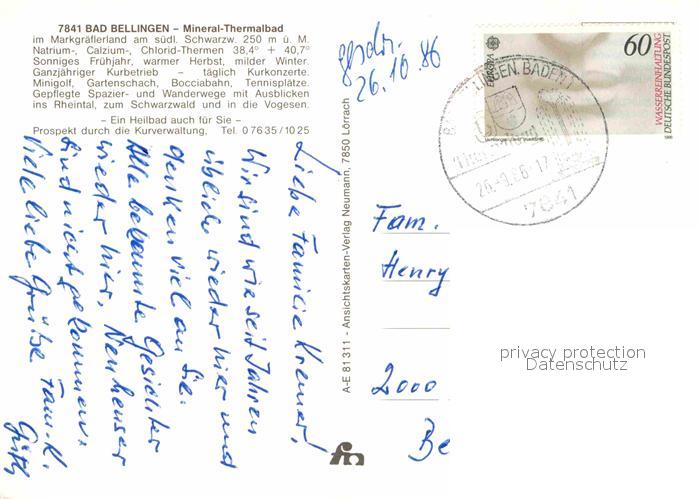 7841 BAD BELLINGEN – Mineral-Thermalbad
im Markgräflerland am südl. Schwarzw. 250 m ü. M.
Natrium-, Calzium-, Chlorid-Thermen 38,4° + 40,7°
Sonniges Frühjahr, warmer Herbst, milder Winter.
Ganzjähriger Kurbetrieb – täglich Kurkonzerte.
Minigolf, Gartenschach, Bocciabahn, Tennisplätze.
Gepflegte Spazier- und Wanderwege mit Ausblicken
ins Rheintal, zum Schwarzwald und in die Vogesen.
– Ein Heilbad auch für Sie –
Prospekt durch die Kurverwaltung, Tel. 0 76 35/10 25
Liebe Familie Kremer!
Wir sind wie seit Jahren
üblich wieder hier und
denken viel an Sie.
Alle bekannte Gesichter
wieder hier. Neuheuser
sind nicht gekommen.
Viele liebe Grüße Fam. K.
A-E 81 311 - Ansichtskarten-Verlag Neumann, 7850 Lörrach
26.10.86
EUROPA
60
WASSERREINHALTUNG
DEUTSCHE BUNDESPOST
7841
Fam.
Henry
2000
Be
privacy protection
Datenschutz